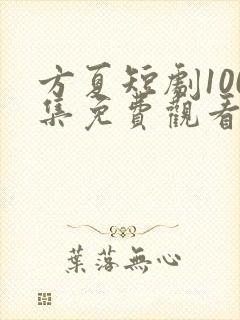 方夏短劇100
集免費觀看
葉落無心